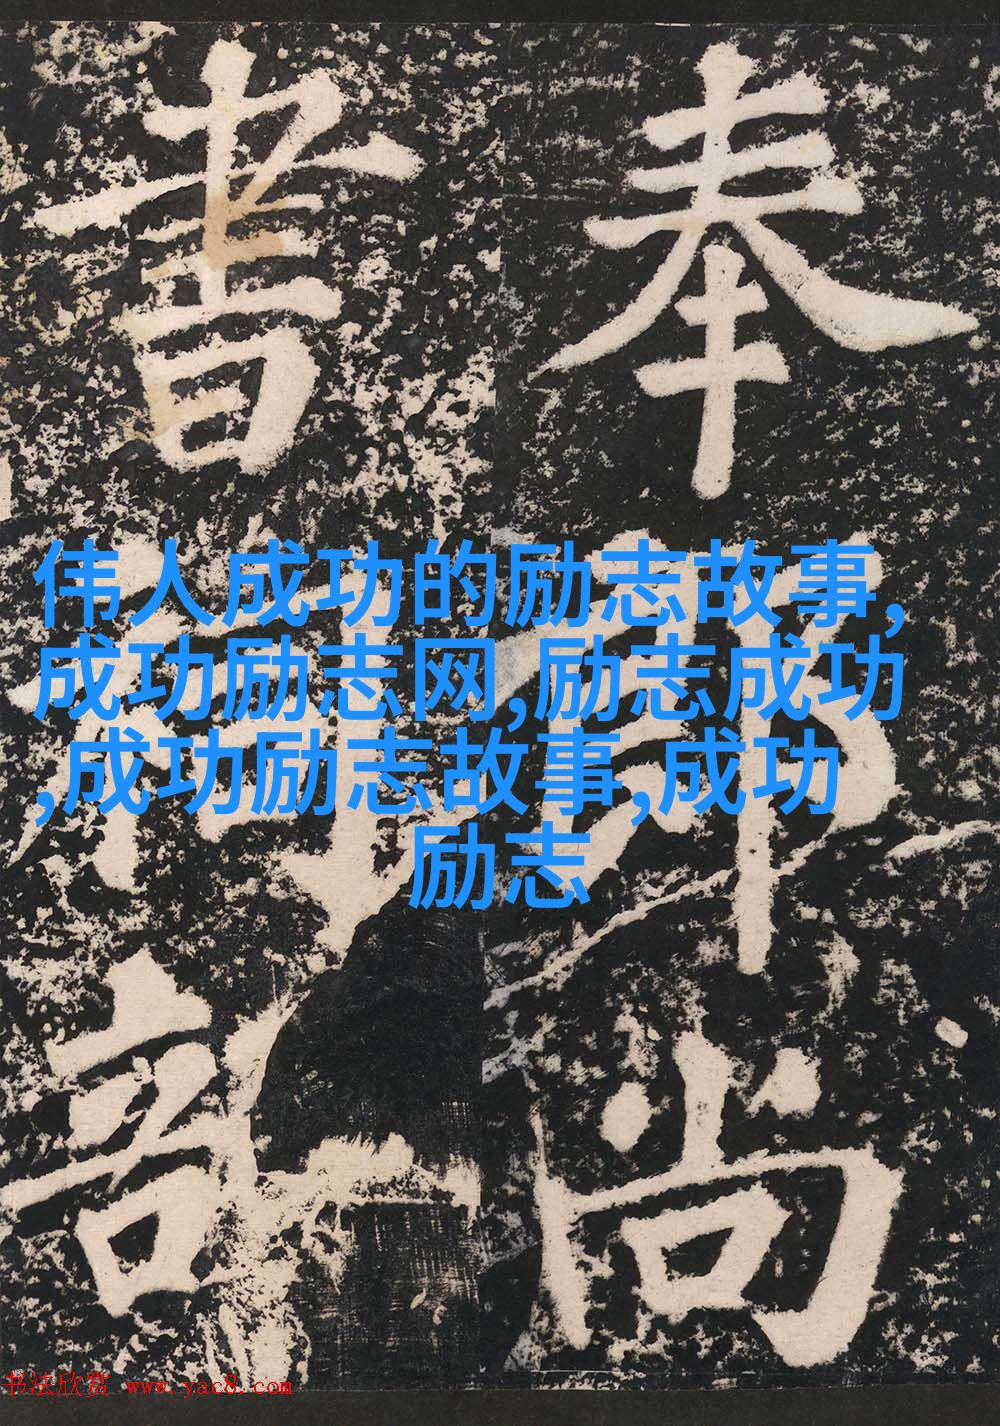 奉郎尚
書祠部
伟人成功的励志故事,
成功励志网,励志成功
,成功励志故事,成功
励志
书法欣赏 www.yac8.com